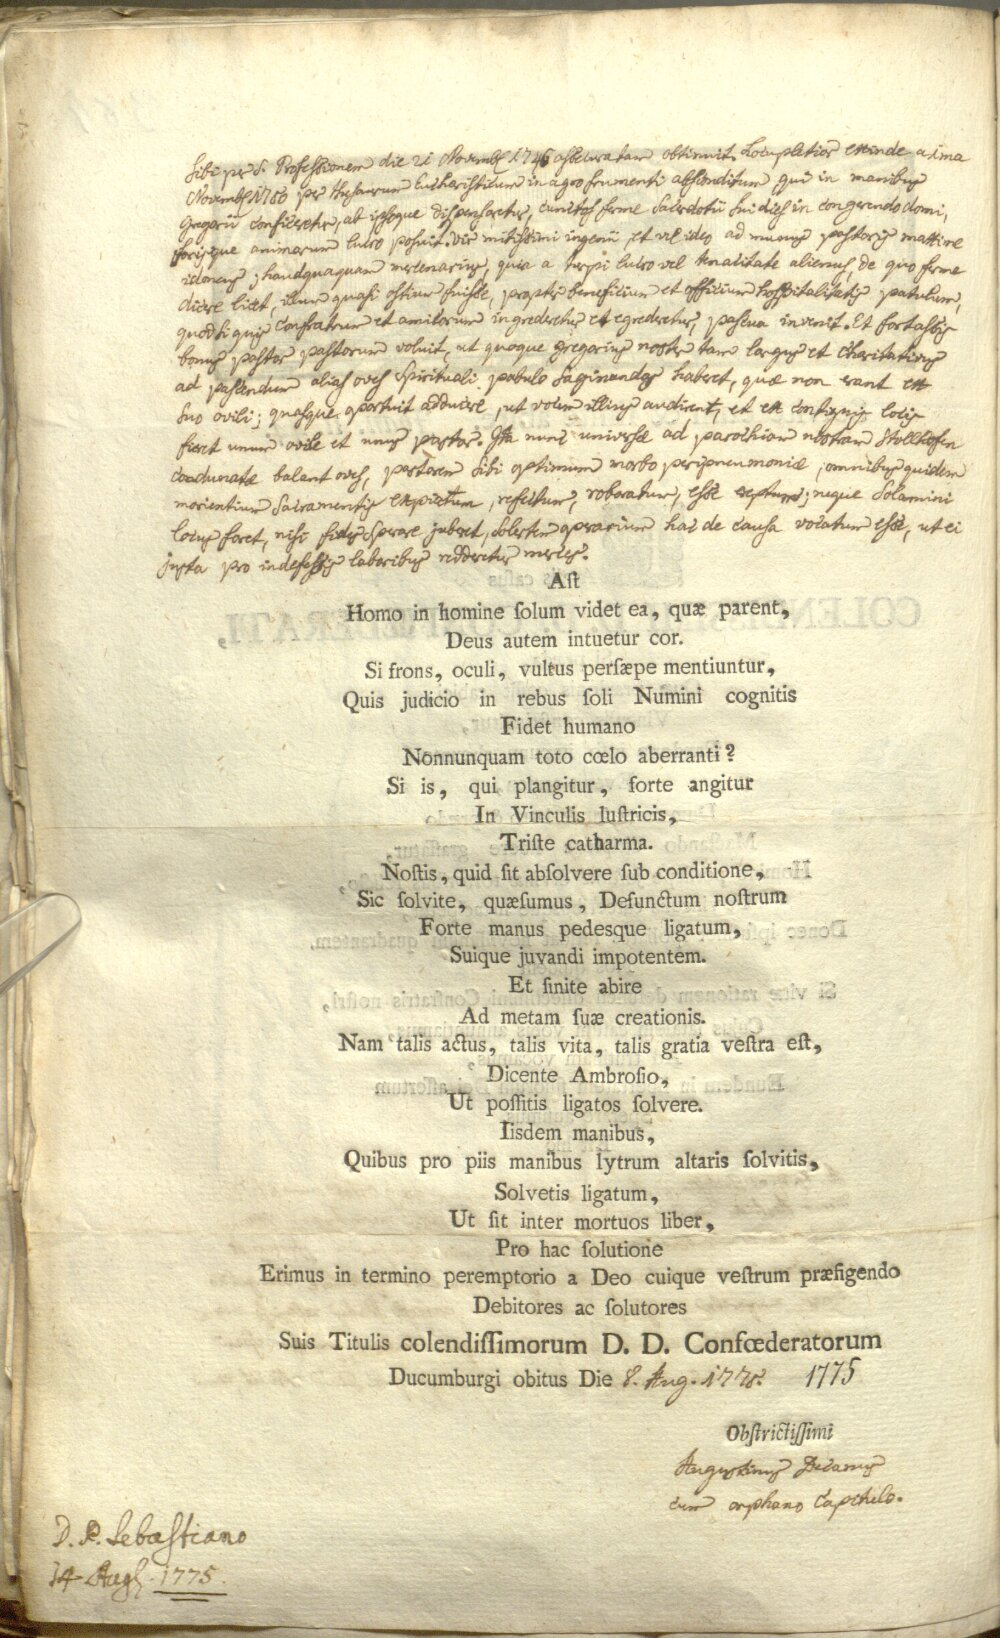 sibi per S. Professionem die 21 Novemb. 1746 assecuratam obtinuit. Locupletior exinde a ima
Novemb. 1750 per thesaurum Eucharisticum in agro frumenti absconditum qui in manibus
Gregorii conficeretur, ab ipsoque dispensaretur, cunctos ferme Sacerdotii sui dies in congerendo domi,
forisque animarum lucro posuit. Vir mitissimi ingenii, et vel ideo ad munus pastoris maxime
idoneus; haudquaquam mercenarius, quia a turpi lucro vel tenacitate alienus, de quo ferme
dicere licet, illum quasi ostium fuisse, propter beneficium et officium hospitalitatis patulum,
quod si quis confratrum et amicorum ingrederetur et egrederetur, pascua invenit. Et fortassis
bonus pastor pastorum voluit, ut quoque Gregorius noster tam largus et charitativus
ad pascendum alias oves spirituali pabulo saginandas haberet, quæ non erant ex
suo ovili; quasque oportuit adducere, ut vocem illius audirent, et ex contiguis locis
fieret unum ovile et unus pastor. Ita nunc universæ ad parochiam nostram Stollhofen
coadunatæ balant oves, pastorem sibi optimum morbo peripneumoniæ, omnibus quidem
morientium Sacramentis expiatum, refectum, roboratum, esse ereptum; neque solamini
locus foret, nisi fides sperare juberet, solertem operarium hac de causa vocatum esse, ut ei
justa pro indefessis laboribus redderetur merces.
Ast
Homo in homine ſolum videt ea, quæ parent,
Deus autem intuetur cor.
Si frons, oculi, vultus perſæpe mentiuntur,
Quis judicio in rebus ſoli Numini cognitis
Fidet humano
Nonnunquam toto cœlo aberranti?
Si is, qui plangitur, forte angitur
In Vinculis luſtricis,
Triſte catharma.
Noſtis, quid ſit abſolvere ſub conditione,
Sic ſolvite, quæſumus, Defunctum noſtrum
Forte manus pedesque ligatum,
Suique juvandi impotentem.
Et ſinite abire
Ad metam ſuæ creationis.
Nam talis actus, talis vita, talis gratia veſtra eſt,
Dicente Ambroſio,
Ut poſſitis ligatos ſolvere.
Iisdem manibus,
Quibus pro piis manibus lytrum altaris ſolvitis,
Solvetis ligatum,
Ut ſit inter mortuos liber,
Pro hac ſolutione
Erimus in termino peremptorio a Deo cuique veſtrum præfigendo
Debitores ac ſolutores
Suis Titulis colendiſſimorum D. D. Confœderatorum
Ducumburgi obitus Die 8. Aug. 1775. 1775
Obſtrictiſſimi
Augustinus Decanus
cum orphano Capitulo.
D. P. Sebastiano
14 Aug. 1775.